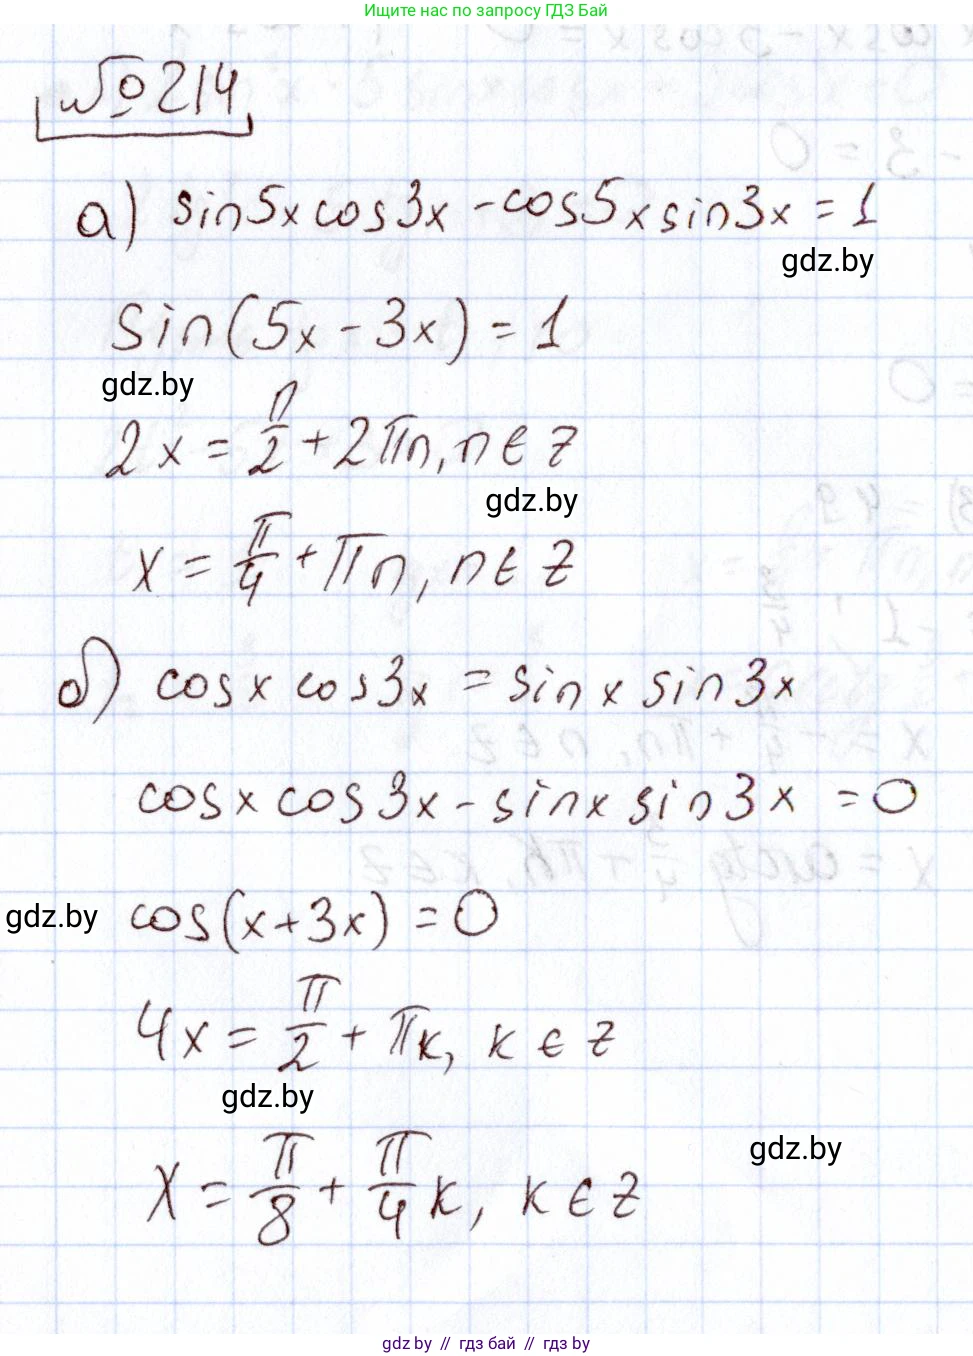 Ищите нас по запросу ГДЗ Бай
№214
а) sin5x cos3x - cos5x sin3x = 1
gdz.by
sin(5x - 3x) = 1
gdz.by
2x = π/2 + 2πn, n ∈ z
gdz.by
x = π/4 + πn, n ∈ z
б) cosx cos3x = sinx sin3x
cosx cos3x - sinx sin3x = 0
gdz.by
cos(x+3x) = 0
4x = π/2 + πk, k ∈ z
gdz.by
gdz.by
x = π/8 + π/4 k, k ∈ z
gdz.by // гдз бай // гдз by